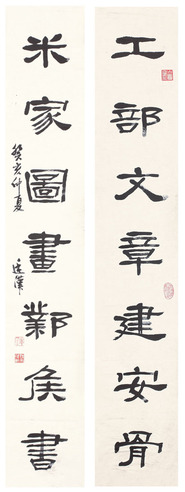 工部文章建安骨
米家圖畫鄴侯書
癸亥仲夏